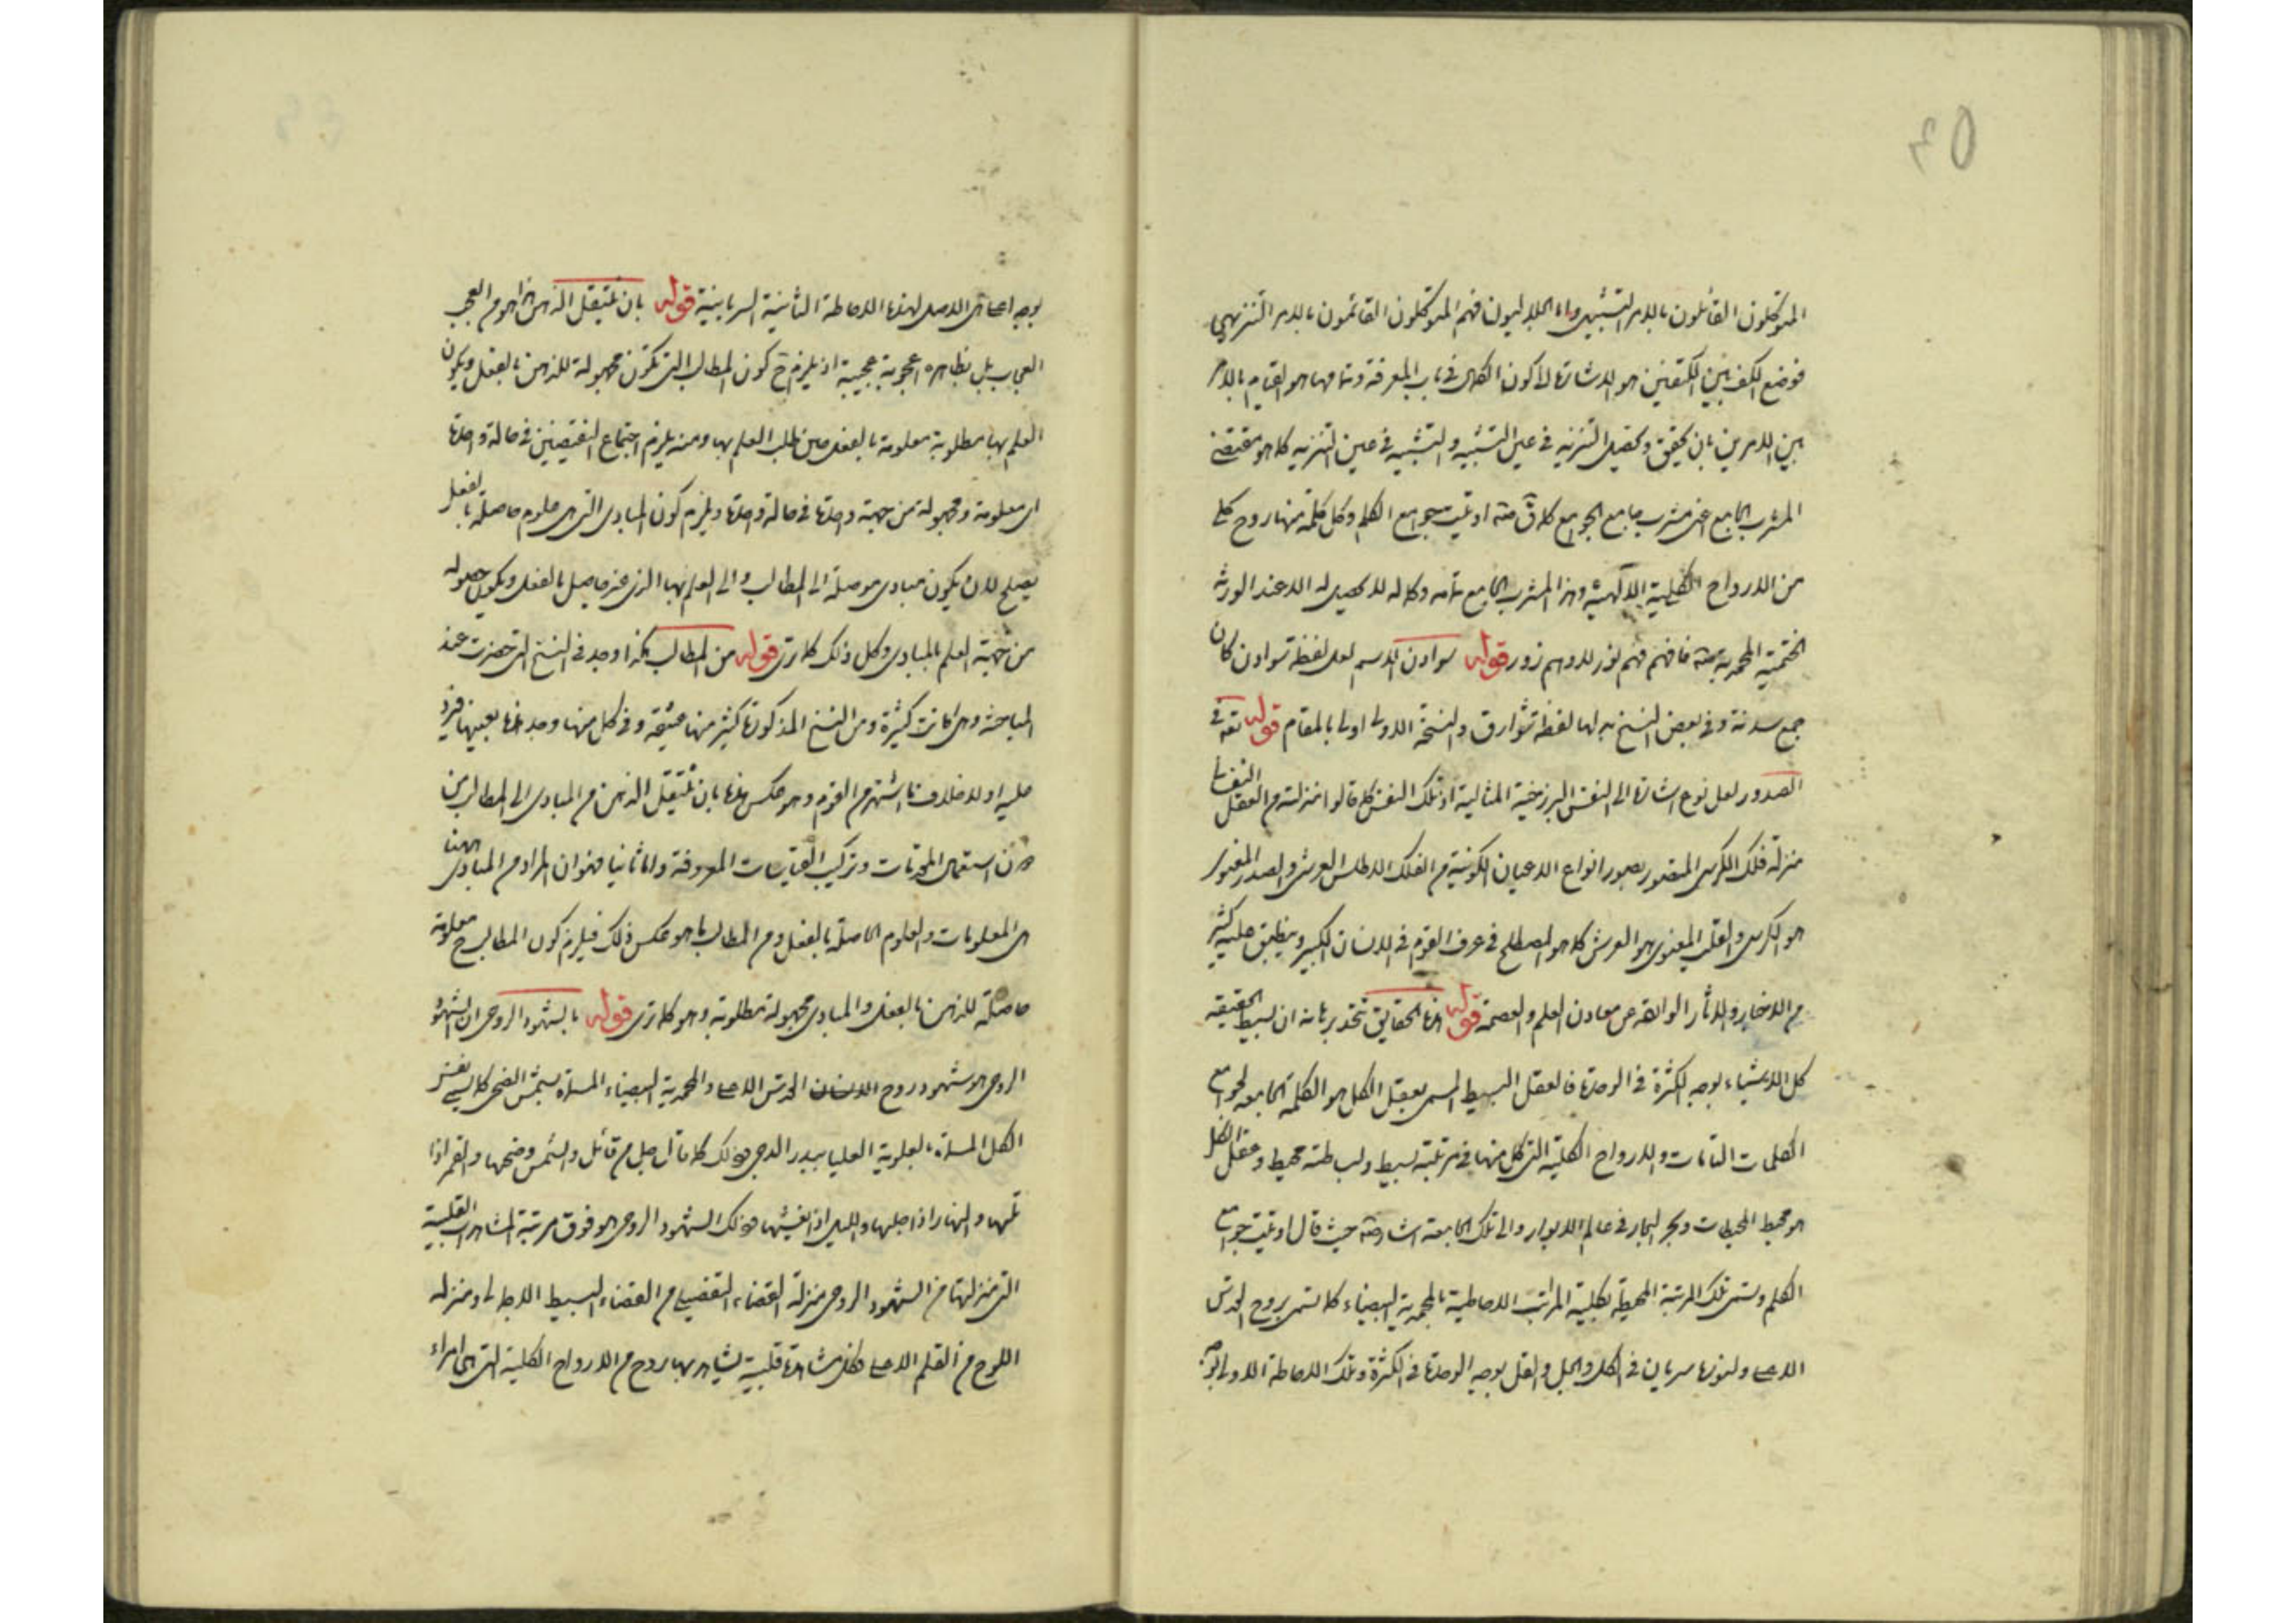 المتوكلون القائلون بالامر التشبيهى واما الجلاليون فهم المتوكلون القائمون بالامر التنزيهى
فوضع الكف بين الكتفين هو الاشارة الى كون الكمال فى باب المعرفة وتمامها هو القيام بالامر
بين الامرين بان يحقق ويحصل التنزيه فى عين التشبيه والتشبيه فى عين التنزيه كما هو مقتضى
المشرب الجامع اعنى مشرب جامع الجوامع كما قال ص اوتيت جوامع الكلم وكل كلمة منها روح كلى
من الارواح الكلية الالهية وهذا المشرب الجامع بتمامه وكماله لا يحصل الا عند الورثة
الختمية المحمدية فافهم فهم نور لا وهم زور قوله سوادن الاسم لعل لفظة سوادن كان
جمع سدنة وفى بعض النسخ بدلها لفظة شوارق والنسخة الاولى اولى بالمقام قوله تعه فى
الصدور لعل نوع اشارة الى النفس البرزخية المثالية اذ تلك النفس كما قالوا منزلته من العقل
منزلة فلك الكرسى المتصور بصور انواع الاعيان الكونية من الفلك الاطلس العرش والصدر المعنوى
هو الكرسى والقلب المعنوى هو العرش كما هو المصطلح فى عرف القوم فى الانسان الكبير وينطبق عليه كثير
من الاخبار والآثار الواردة عن معادن العلم والعصمة قوله هذه الحقايق تحقد بر بامه ان بسيط الحقيقة
كل الاشياء بوجه الكثرة فى الوحدة فالعقل البسيط المسمى بعقل الكل هو الكلمة الجامعة لجوامع
الكلمات التامات والارواح الكلية التى كل منها فى مرتبته بسيط ولبساطته محيط وعقل الكل
هو محيط المحيطات وبحر البحار فى عالم الانوار والى تلك الجامعة اشار ص حيث قال اوتيت جوامع
الكلم وتسمى تلك المرتبة المحيطة بكلية المراتب الاحاطية بالمحمدية البيضاء كما تسمى بروح القدس
الاعلى ولنورها سريان فى الكل والجل والقل بوجه الوحدة فى الكثرة وتلك الاحاطة الاولى
بوجه اعلى الاصل لهذه الاحاطة الثانية السريانية قوله بان ينتقل الذهن هذا هو من العجب
العجاب بل بظاهره اعجوبة عجيبة اذ يلزم ح كون المطالب التى تكون مجهولة للذهن بالفعل ويكون
العلم بها مطلوبة معلومة بالفعل حين طلب العلم بها ومنه يلزم اجتماع النقيضين فى حالة واحدة
اى معلومة ومجهولة من جهة واحدة فى حالة واحدة ويلزم كون المبادى التى هى علوم حاصلة بالفعل
يصلح لان يكون مبادى موصلة الى المطالب والى العلم بها الذى غير حاصل بالفعل ويكون حصوله
من جهة العلم بالمبادى وكل ذلك كما ترى قوله من المطالب هكذا وجد فى النسخ التى حضرت عند
المباحثة وهى كانت كثيرة ومن النسخ المذكورة كثير منها عتيقة وفى كل منها وجد هذه بعينها فيرد
عليه اولا خلاف ما اشتهر من القوم وهو عكس هذه بان ينتقل الذهن من المبادى الى المطالب من
دون استعمال المحركات وتركيب القياسات المعروفة واما ثانيا فهو ان المراد من المبادى ههنا
هى المعلومات والعلوم الحاصلة بالفعل ومن المطالب ما هو عكس ذلك فيلزم كون المطالب ح معلومة
حاصلة للذهن بالفعل والمبادى مجهولة مطلوبة وهو كما ترى قوله بالشهود الروحى ان الشهود
الروحى هو شهود روح الانسان القدس الاعلى والمحمدية البيضاء المسماة بشمس الضحى كما يسمى نفس
الكل المسماة بالعلوية العليا ببدر الدجى وذلك كما قال جل من قائل والشمس وضحيها والقمر اذا
تليها والنهار اذا جليها والليل اذا يغشيها وذلك الشهود الروحى هو فوق مرتبة المشاهدات القلبية
التى منزلتها من الشهود الروحى منزلة القضاء التفصيلى من القضاء البسيط الاجمالى ومنزلة
اللوح من القلم الاعلى وكل مشاهدة قلبية يشاهد بها روح من الارواح الكلية التى هى امراء